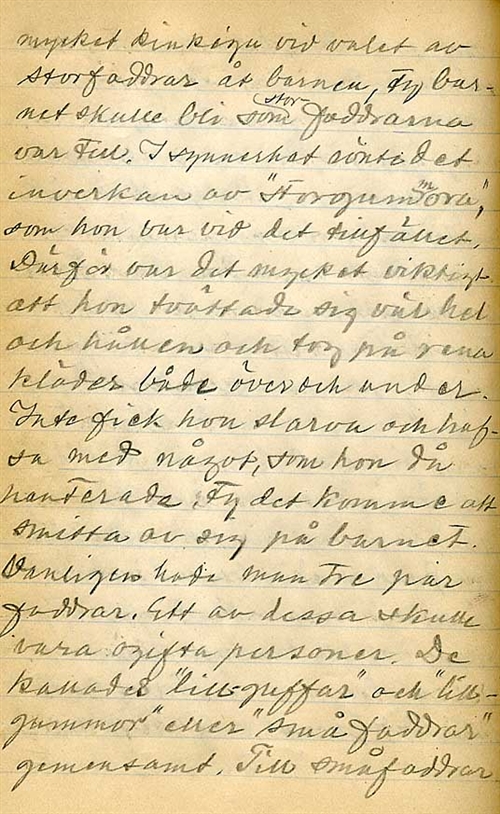 mycket kinkiga vid valet av
storfaddrar åt barnen, ty bar-
net skulle bli som stor-faddrarna
var till. I synnerhet rönte det
inverkan av "storgummora",
som hon var vid det tillfället.
Därför var det mycket viktigt
att hon tvättade sig väl hel
och hållen och tog på rena
kläder både över och under.
Inte fick hon slarva och haf-
sa med något, som hon då
hanterade. Ty det komme att
smitta av sig på barnet.
Vanligen hade man tre par
faddrar. Ett av dessa skulle
vara ogifta personer. De
kallades "lill-guffar" och "lill-
gummor" eller "små faddrar"
gemensamt. Till småfaddrar